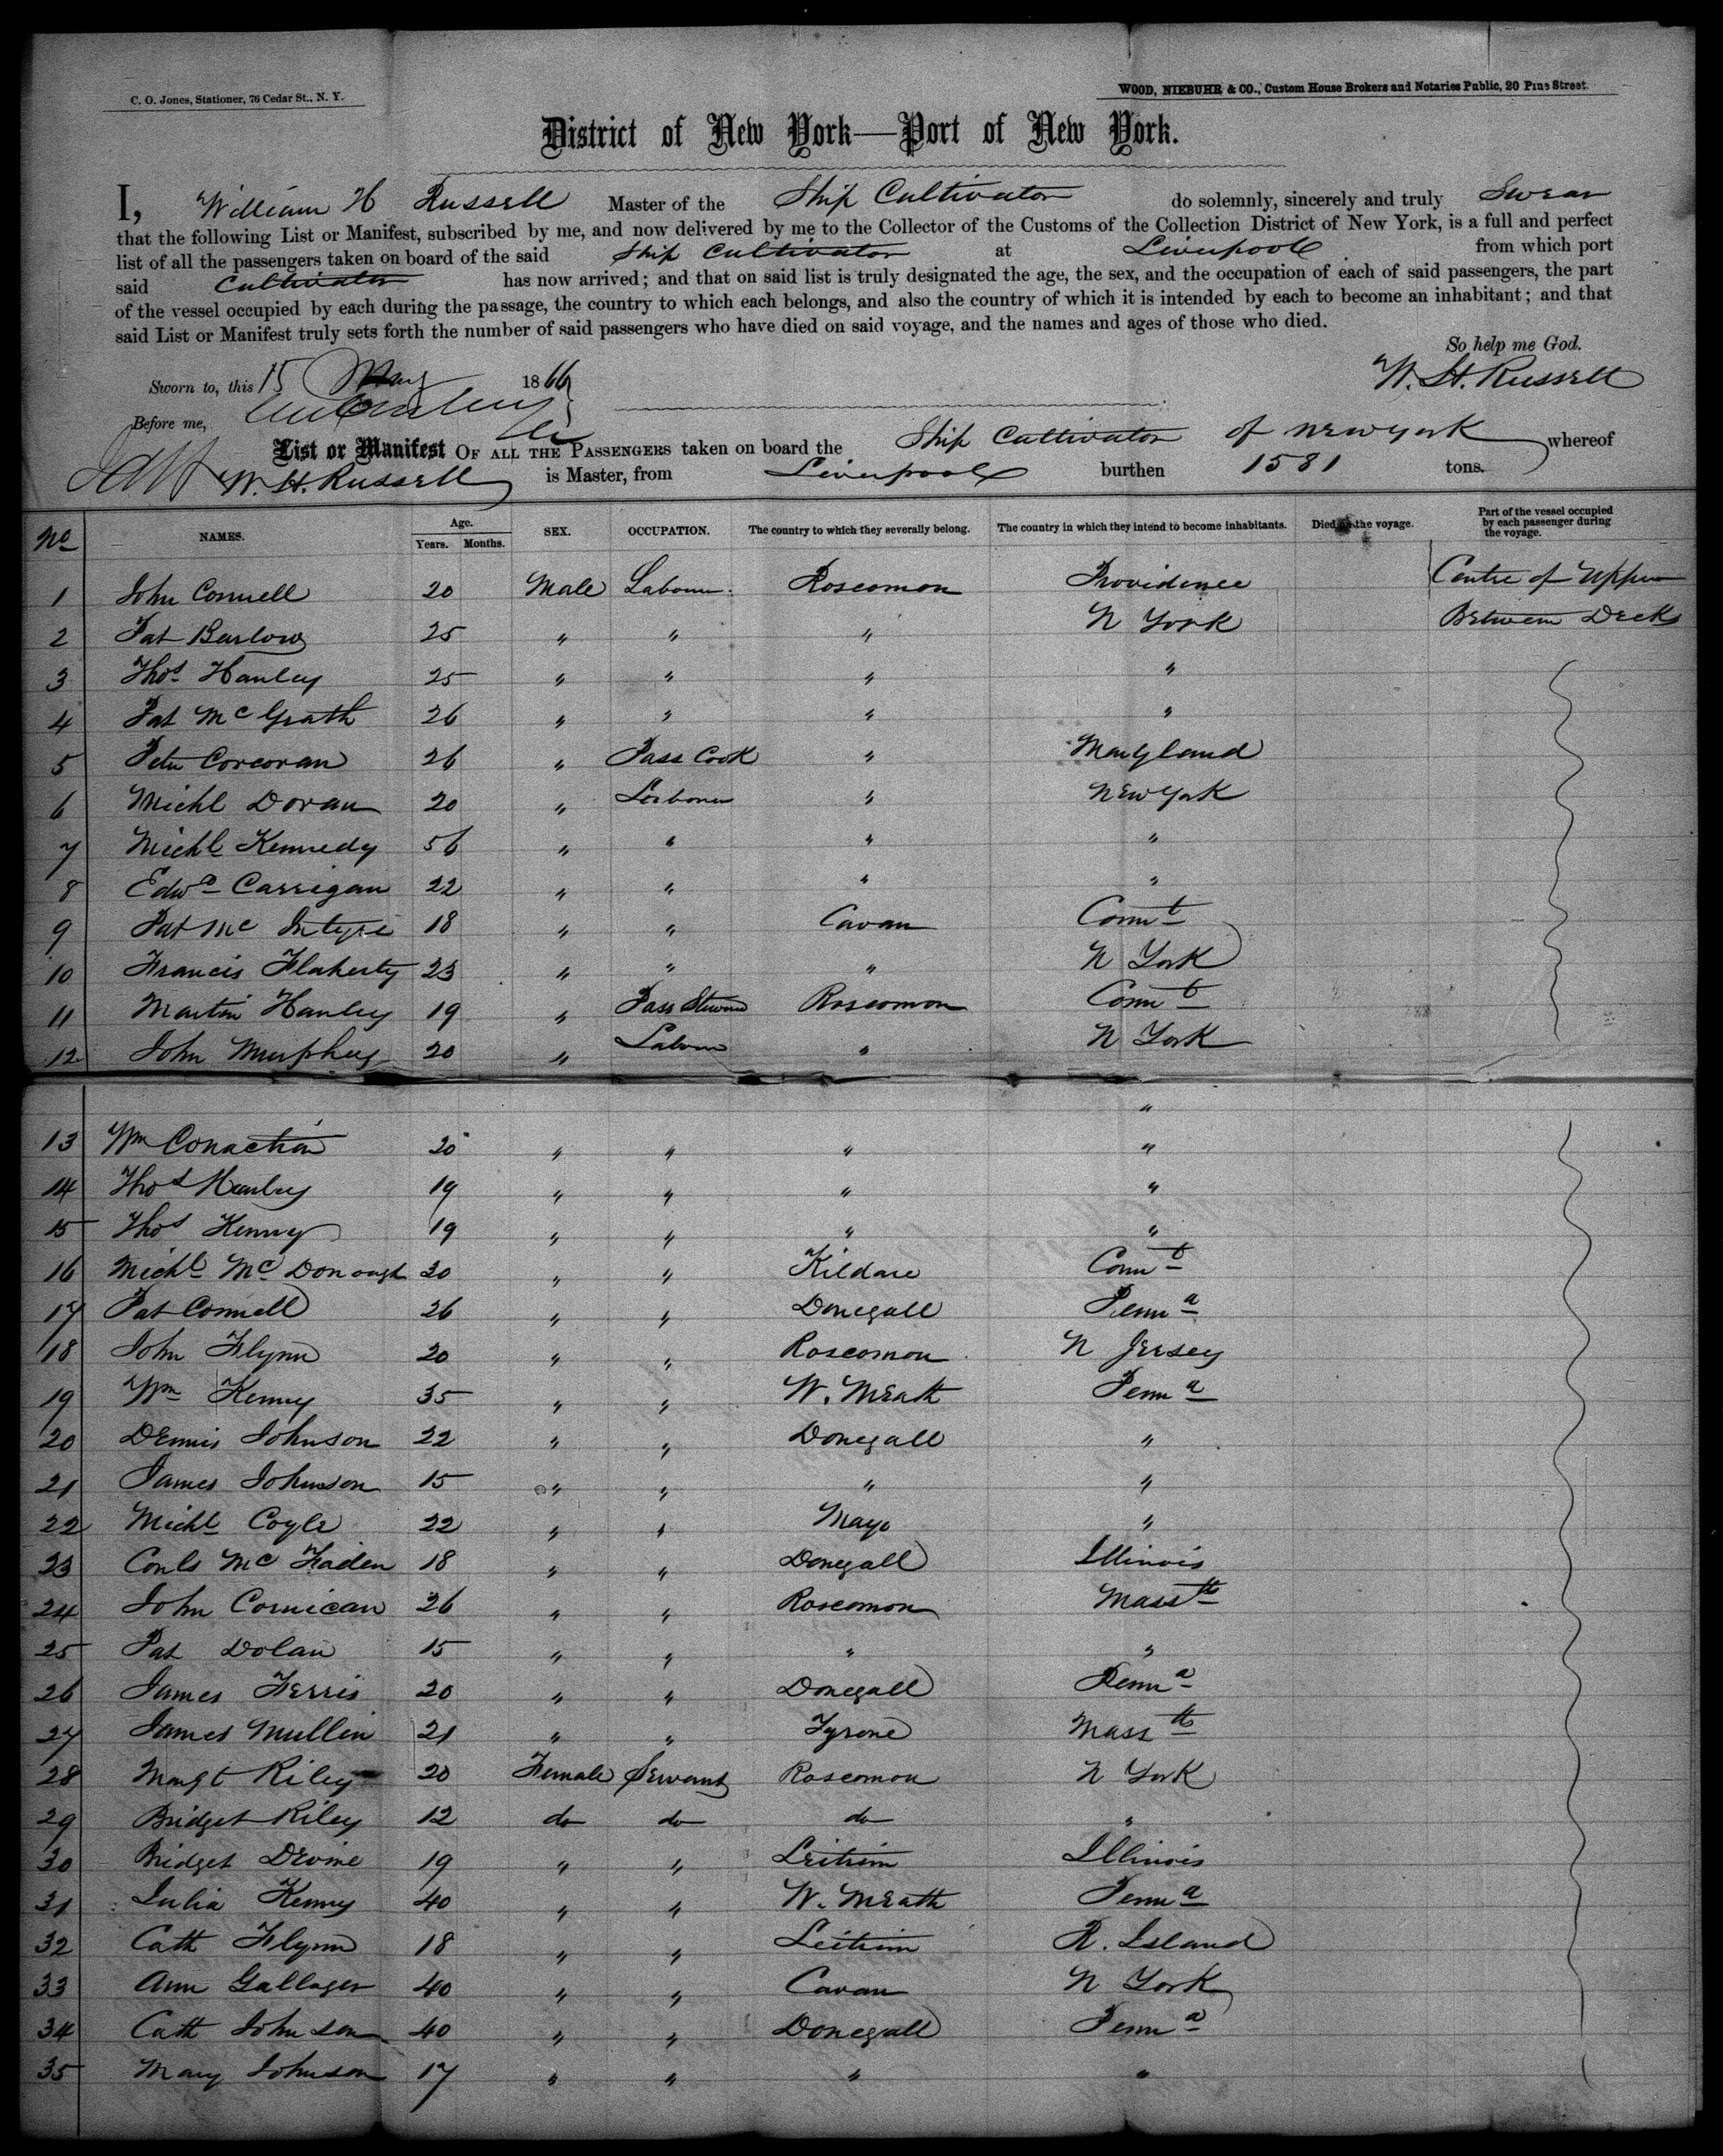 C. O. Jones, Stationer, 76 Cedar St., N. Y.
WOOD, NIEBUHR & CO., Custom House Brokers and Notaries Public, 20 Pine Street.
District of New York—Port of New York.
I, William H Russell Master of the Ship Cultivator do solemnly, sincerely and truly Swear
that the following List or Manifest, subscribed by me, and now delivered by me to the Collector of the Customs of the Collection District of New York, is a full and perfect
list of all the passengers taken on board of the said Ship Cultivator at Liverpool from which port
said Cultivator has now arrived; and that on said list is truly designated the age, the sex, and the occupation of each of said passengers, the part
of the vessel occupied by each during the passage, the country to which each belongs, and also the country of which it is intended by each to become an inhabitant; and that
said List or Manifest truly sets forth the number of said passengers who have died on said voyage, and the names and ages of those who died.
So help me God.
Sworn to, this 15 May 1866
W. H. Russell
Before me,
List or Manifest OF ALL THE PASSENGERS taken on board the Ship Cultivator of New York whereof
W. H. Russell is Master, from Liverpool burthen 1581 tons.
No NAMES. Age. Years. Months. SEX. OCCUPATION. The country to which they severally belong. The country in which they intend to become inhabitants. Died on the voyage. Part of the vessel occupied by each passenger during the voyage.
1 John Connell 20 Male Labourer Roscomon Providence Centre of Upper
2 Pat Barlow 25 " " " N York Between Decks
3 Thos Hanley 25 " " " "
4 Pat McGrath 26 " " " "
5 Peter Corcoran 26 " Pass Cook " Maryland
6 Michl Doran 20 " Labourer " New York
7 Michl Kennedy 56 " " " "
8 Edwd Carrigan 22 " " " "
9 Pat McIntyre 18 " " Cavan Connt
10 Francis Flaherty 23 " " " N York
11 Martin Hanley 19 " Pass Steward Roscomon Connt
12 John Murphey 20 " Labour " N York
"
13 Wm 20 " " " "
14 Thos Hanley 19 " " " "
15 Thos Kenny 19 " " " "
16 Michl McDonough 20 " " Kildare Connt
17 Pat Connell 26 " " Donegall Penna
18 John Flynn 20 " " Roscomon N Jersey
19 Wm Kenny 35 " " W. Meath Penna
20 Dennis Johnson 22 " " Donegall "
21 James Johnson 15 " " " "
22 Michl Coyle 22 " " Mayo "
23 McFaden 18 " " Donegall Illinois
24 John Cornican 26 " " Roscomon Massts
25 Pat Dolan 15 " " " "
26 James Ferris 20 " " Donegall Penna
27 James Mullin 21 " " Tyrone Massts
28 Margt Riley 20 Female Servant Roscomon N York
29 Bridget Riley 12 do do do "
30 Bridget Devine 19 " " Leitrim Illinois
31 Julia Kenny 40 " " W. Meath Penna
32 Cath Flynn 18 " " Leitrim R. Island
33 Ann Gallager 40 " " Cavan N York
34 Cath Johnson 40 " " Donegall Penna
35 Mary Johnson 17 " " " "